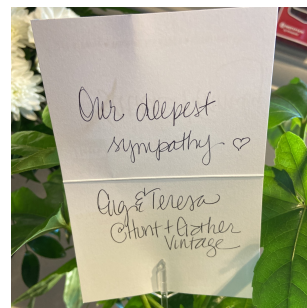 Our deepest
sympathy ♡
Gig & Teresa
Hunt + Gather
Vintage